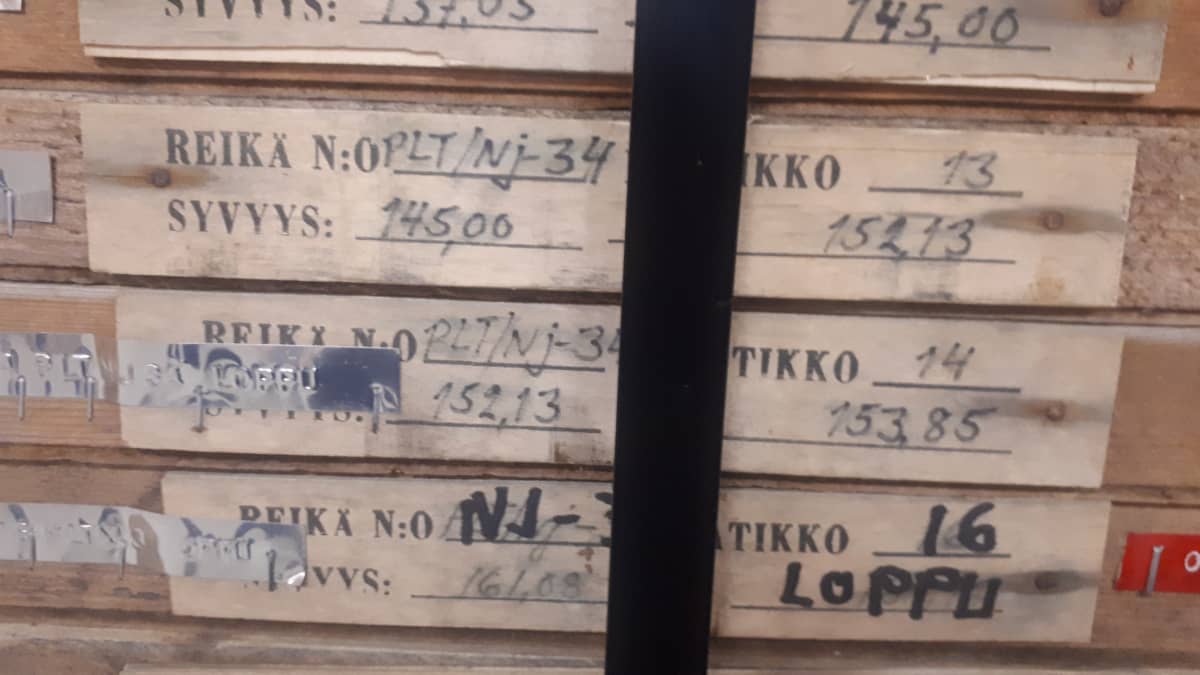 SYVYYS: 137,05 145,00
REIKÄ N:O PLT/Nj-34 IKKO 13
SYVYYS: 145,00 - 152,13
REIKÄ N:O PLT/Nj-34 TIKKO 14
LOPPU
SYVYYS: 152,13 153,85
REIKÄ N:O NJ-3 ATIKKO 16
SYVYYS: 161,08 LOPPU